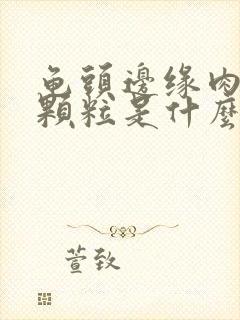 龟頭邊缘肉
顆粒是什麼
萱致